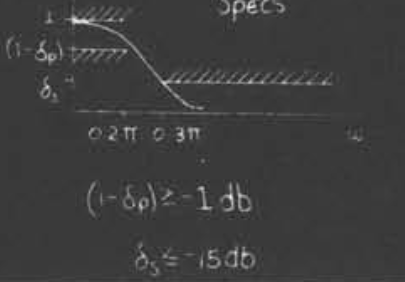 Specs
1
(1-δp)
δs
0.2π 0.3π ω
(1-δp) ≥ -1 db
δs ≤ -15 db